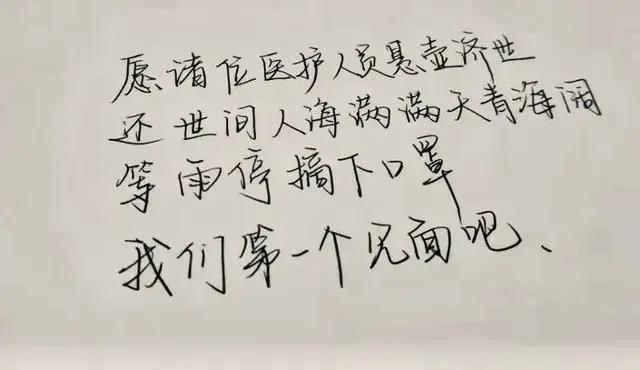 愿诸位医护人员悬壶济世
还世间人海满满天青海阔
等雨停摘下口罩
我们第一个见面吧、